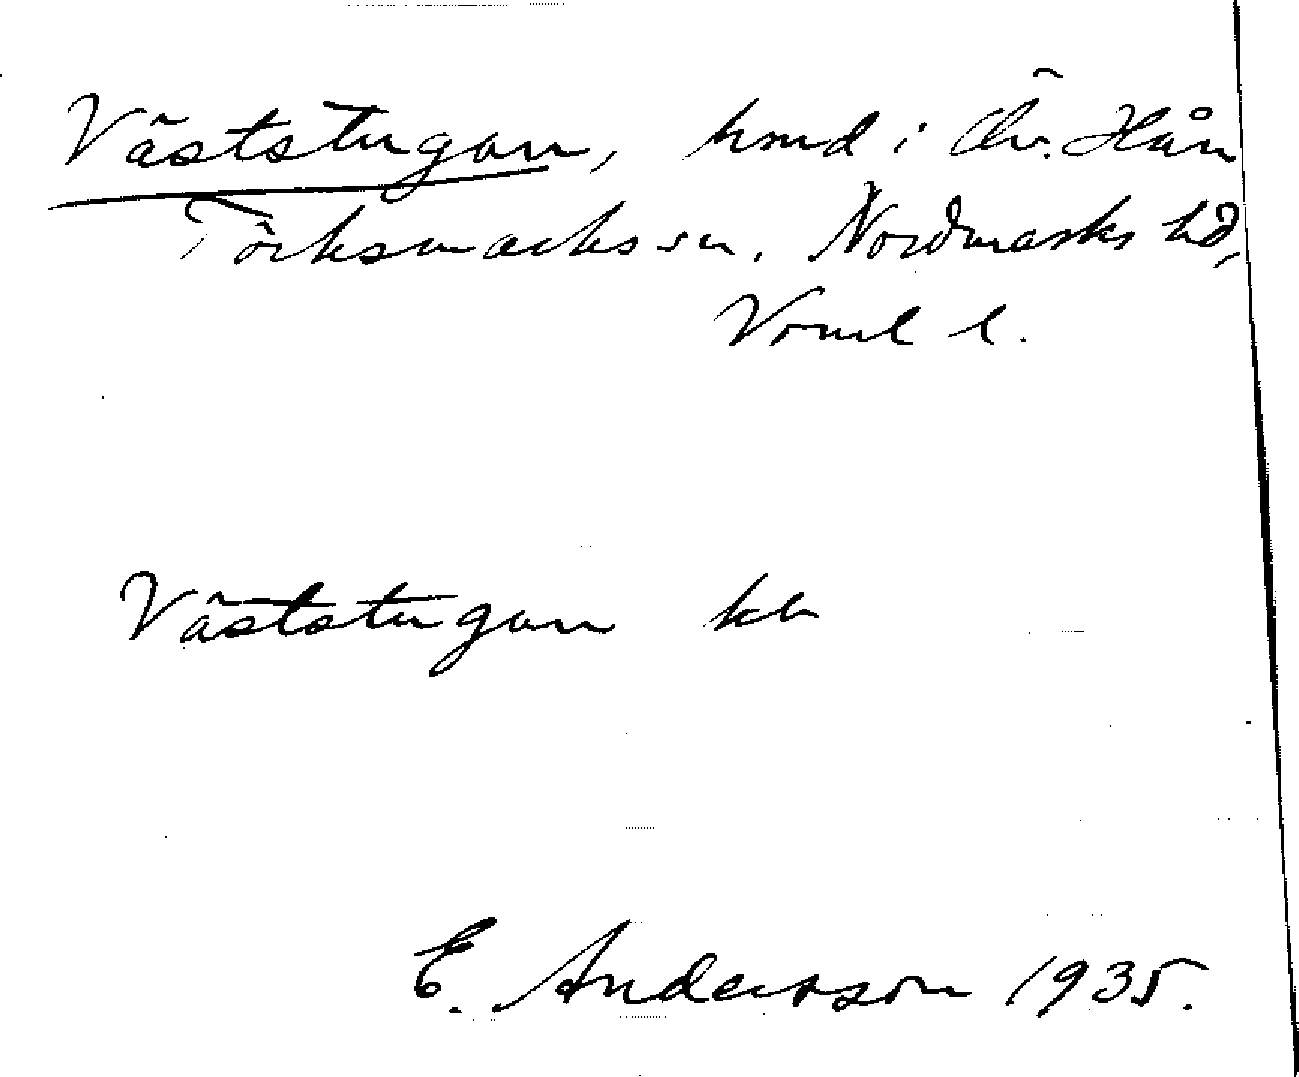 Väststugan, hmd i Öv. Hån
Töcksmarks sn, Nordmarks hd,
Vrml l.
Väststugan
E. Anderson 1935.